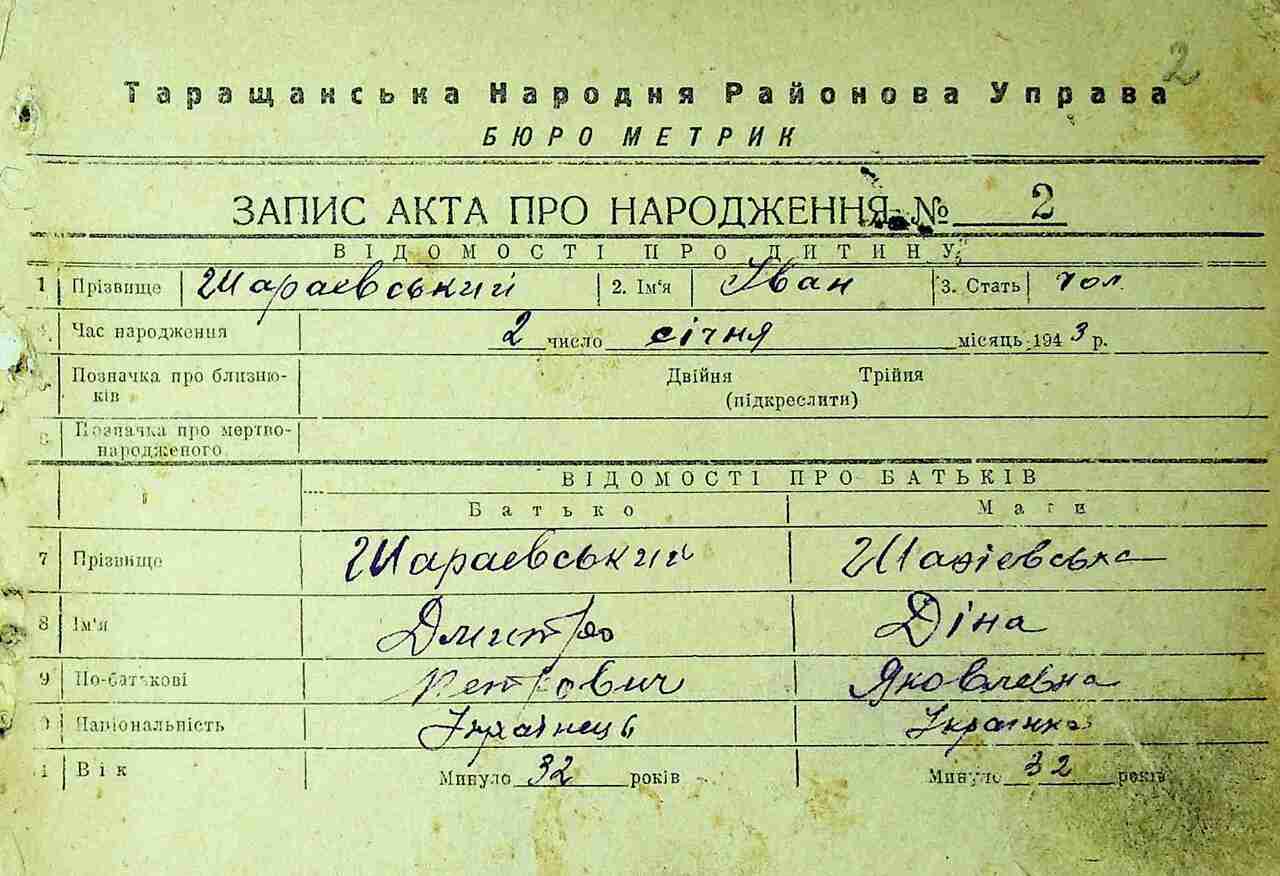 2
Таращанська Народня Районова Управа
БЮРО МЕТРИК
ЗАПИС АКТА ПРО НАРОДЖЕННЯ № 2
ВІДОМОСТІ ПРО ДИТИНУ
1 Прізвище Шараєвський 2. Ім'я Іван 3. Стать чол.
Час народження 2 число січня місяць 1943 р.
Позначка про близню- Двійня Трійня
ків (підкреслити)
Позначка про мертво-
народженого
ВІДОМОСТІ ПРО БАТЬКІВ
Батько Мати
7 Прізвище Шараєвський
8 Ім'я Дмитро Діна
9 По-батькові Петрович Яковлевна
Національність Українець Українка
Вік Минуло 32 років Минуло 32 років